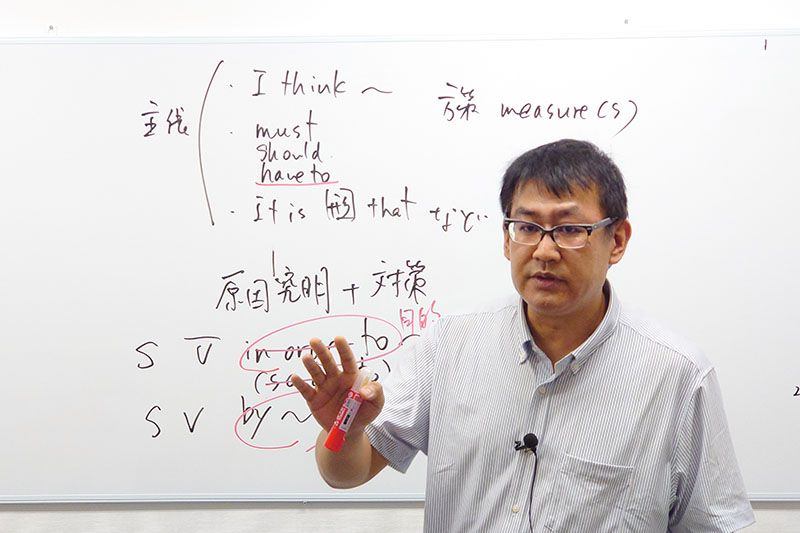 ・I think ～
方策 measure(s)
主張
・must
should
have to
・It is 形 that
など
原因究明 + 対策
目的
S V in order to ～
(so as to)
S V by ～